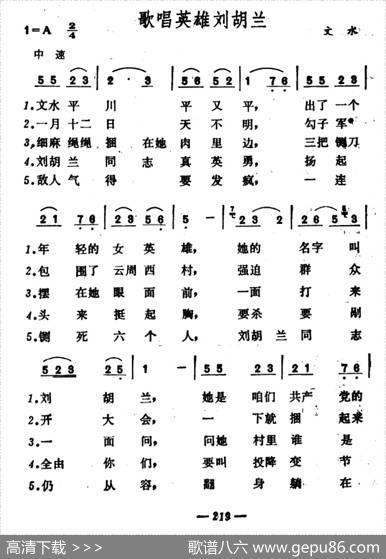 歌唱英雄刘胡兰
1=A 2/4 文水
中速
5 5 2 3 | 2 · 3 | 5 6 5 2 | 1 7 6 | 5 5 2 3
1.文水平川 平又平, 出了一个
2.一月十二日 天不明, 勾子军
3.细麻绳绳捆在她肉里边, 三把铡刀
4.刘胡兰同志 真英勇, 扬起
5.敌人气得 要发疯, 一连
2 1 7 6 | 5 - | 2 3 2 | 2 2 6 5
1.年轻的女英雄, 她的名字叫
2.包围了云周西村, 强迫群众
3.摆在她眼面前, 一面打来
4.头来挺起胸, 要杀要剐
5.铡死六个人, 刘胡兰同志
5 2 3 | 2 5 | 1 - | 5 5 2 3 | 2 1 7 6
1.刘胡兰, 她是咱们共产党的
2.开大会, 一下就捆起来
3.一面问, 问她村里谁是
4.全由你们, 要叫投降变节
5.仍从容, 翻身躺在
— 213 —
高清下载 >>> 歌谱八六 www.gepu86.com